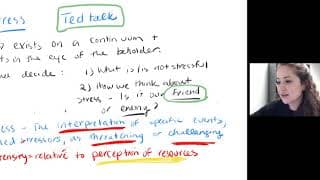 RESS Ted talk
exists on a continuum +
ts in the eye of the beholder.
we decide: 1) What is/is not stressful
2) How we think about
stress - Is it our friend
or enemy?
ess - The interpretation of specific events,
ed stressors, as threatening or challenging
ensing=relative to perception of resources